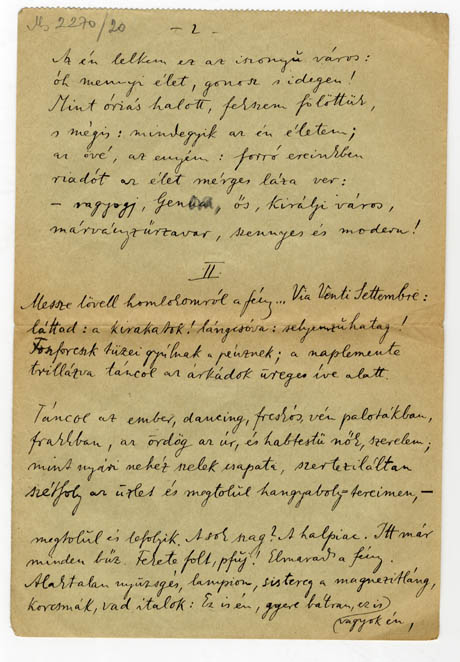 Ms 2270/20
- 2 -
Az én lelkem ez az iszonyú város:
óh mennyi élet, gonosz s idegen!
Mint óriás halott, fekszem fölöttük,
s mégis: mindegyik az én életem;
az övé, az enyém: forró ereinkben
riadót az élet mérges láza ver:
- ragyogj, Genova, ős, királyi város,
márványzűrzavar, szennyes és modern!
II.
Messze lövell homlokomról a fény... Via Venti Settembre:
láttad: a kirakatok! lángcsóva: selyemzuhatag!
Foszforcsík tüzei gyúlnak a pénznek; a naplemente
trillázva táncol az árkádok üreges íve alatt.
Táncol az ember, dancing, freskós, vén palotákban,
frakkban, az ördög az úr, és habtestű nők, szerelem;
mint nyári nehéz szelek csapata, szerteziláltan
szétfoly az üzlet és megtolúl hangyaboly-tereimen, -
megtolúl és lefolyik. A sok szag? A halpiac. Itt már
minden bűz. Fekete folt, pfuj! Elmarad a fény.
Alaktalan nyüzsgés, lampion, sistereg a magnezitláng,
korcsmák, vad italok: Ez is én, gyere bátran, ez is
vagyok én,